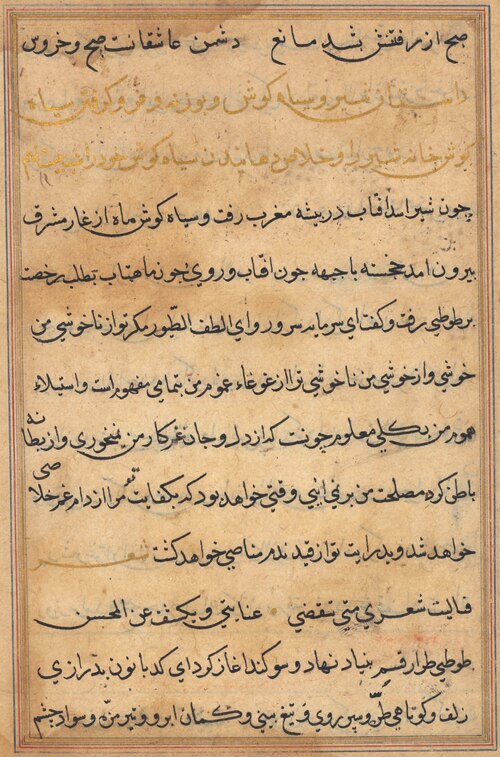 صبح از رفتنش بشد مانع دشمن عاشقانست صبح و خروس
داستان شیر و سیاه گوش و بوزنه و فرو گرفتن سیاه
گوش خانه شیر را و خلاص دهانیدن سیاه گوش خود را
چون شیر اسد آفتاب در بیشه مغرب رفت و سیاه گوش ماه از غار مشرق
بیرون امد خجسته با جبهه چون افتاب و روی چون ماهتاب بطلب رخصت
بر طوطی رفت و گفت ای سرمایه سرور و ای الطف الطیور مکر تو از ناخوشی من
خوشی و از خوشی من ناخوشی ترا از غوغاء غموم من بتمامی مفهوم است و استیلاء
هموم من بکلی معلوم چونست که از دل و جان غم کار من نمیخوری و از بطانه
باطن کرد مصلحت من بر نمی ائی وقتی خواهد بود که بکفایت تو مرا از دام غم خلاصی
خواهد شد و بدرایت تو از قید ندم مناصی خواهد گشت شعر
قالیت شعری متی تنقضی عنایتی و یکشف عن المحسن
طوطی طرار قسم بنیاد نهاد و سوکند اغاز کرد ای کدبانو بدرازی
زلف و کوتاهی طره و سپر روی و تیغ بینی و کمان ابرو و تیر مژه و سواد چشم